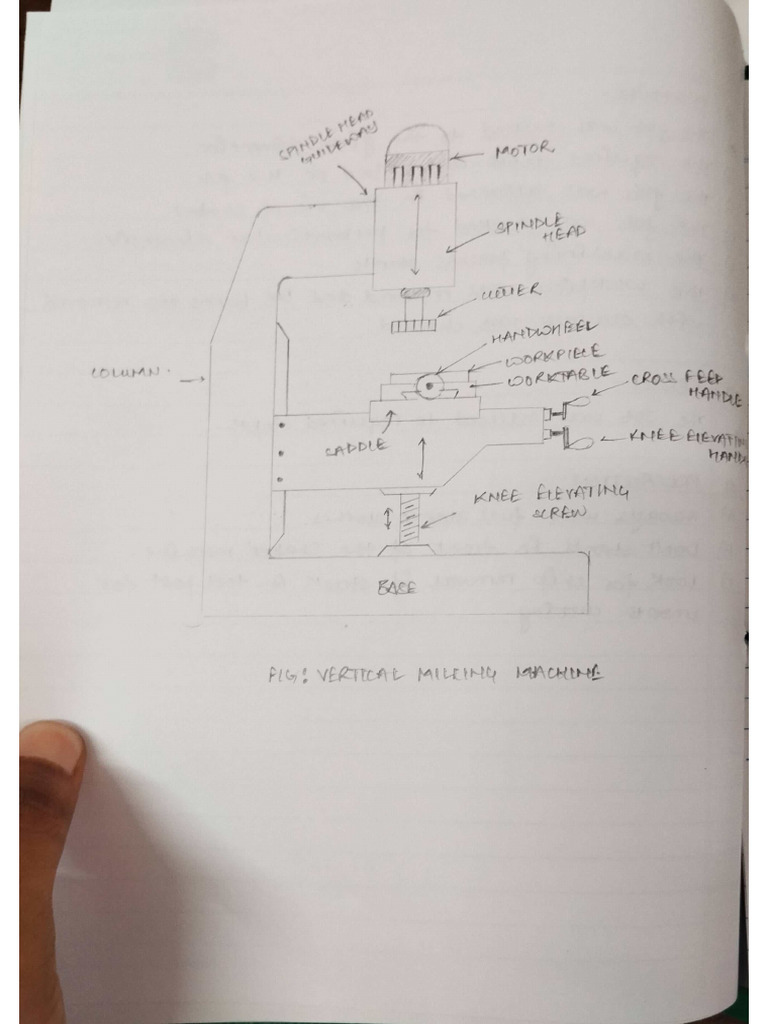 SPINDLE HEAD
GUIDEWAY
MOTOR
SPINDLE
HEAD
CUTTER
HANDWHEEL
WORKPIECE
WORKTABLE
CROSS FEED
HANDLE
COLUMN
SADDLE
KNEE ELEVATIN
HAND
KNEE ELEVATING
SCREW
BASE
FIG: VERTICAL MILLING MACHINE